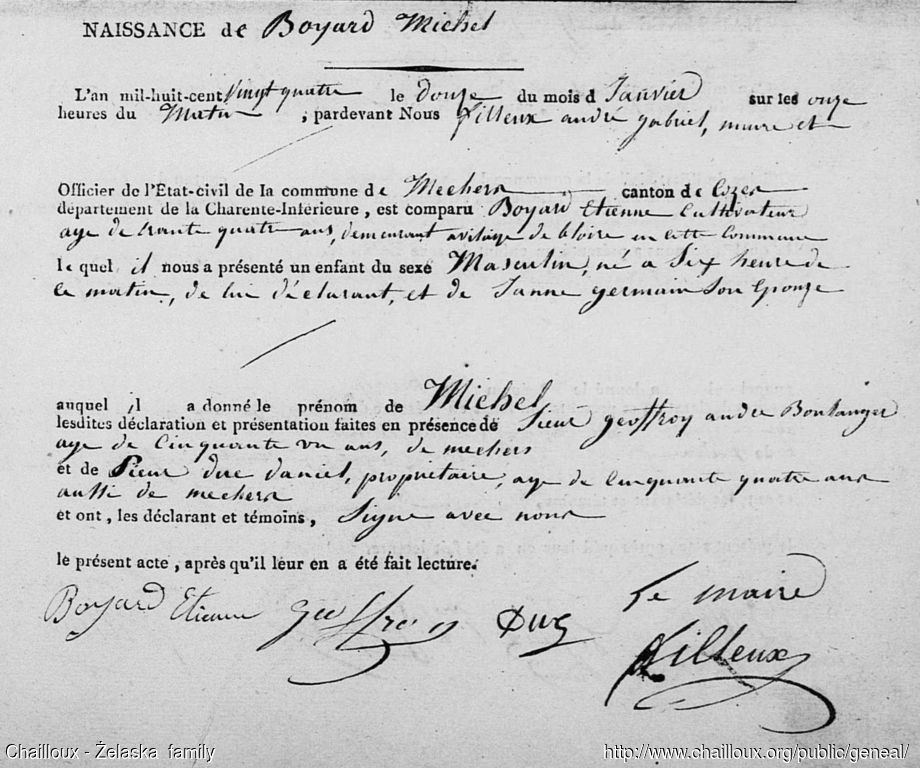 NAISSANCE de Boyard Michel
L'an mil-huit-cent vingt quatre le douze du mois d Janvier sur les onze
heures du Matin ; pardevant Nous Lilleux andre gabriel, maire et
Officier de l'Etat-civil de la commune de Mechers canton de Cozes
département de la Charente-Inférieure, est comparu Boyard Etienne Cultivateur
age de trante quatre ans, demeurant a vilage de en cette Commune
le quel il nous a présenté un enfant du sexe Masculin, né a Six heure de
ce matin, de lui déclarant, et de Janne germain Son Epouze
auquel il a donné le prénom de Michel
lesdites déclaration et présentation faites en présence de Sieur geoffroy andre Boulanger
age de Cinquante un ans, de mechers
et de Sieur duc daniel, propriétaire, age de Cinquante quatre ans
aussi de mechers
et ont, les déclarant et témoins, Signe avec nous
le présent acte, après qu'il leur en a été fait lecture.
Boyard Etienne Geoffroy Duc Le maire
Lilleux
Chailloux - Żelaska family http://www.chailloux.org/public/geneal/